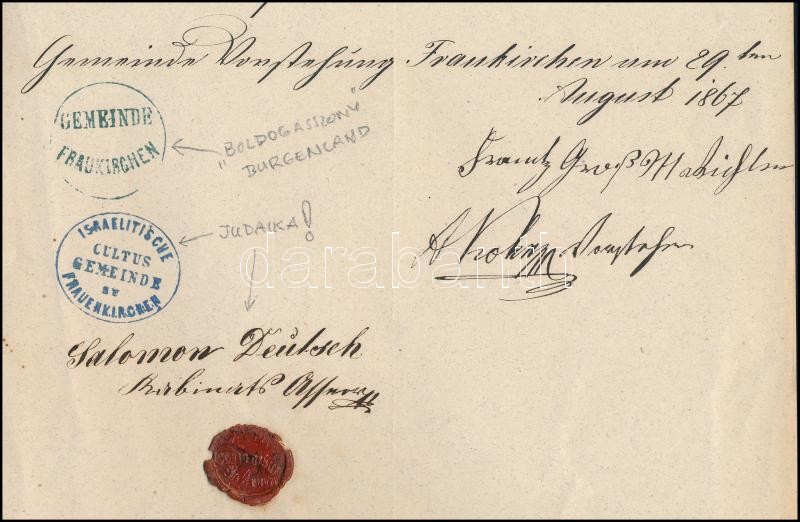 Gemeinde Vorstehung Fraukirchen am 29ten
August 1867
GEMEINDE
FRAUKIRCHEN
"BOLDOGASSZONY"
BURGENLAND
Frantz Groß
Vorsteher
ISRAELITISCHE
CULTUS
GEMEINDE
ZU
FRAUENKIRCHEN
JUDAIKA!
darabanth
Salomon Deutsch
Rabinats Assessor